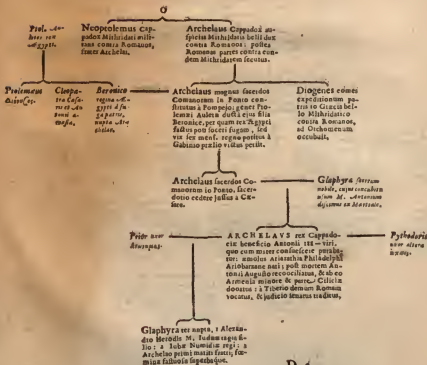 O
Ptol. Au-
letes rex
Ægypti.
Neoptolemus Cap-
padox Mithridati mili-
tans contra Romanos,
frater Archelai.
Archelaus Cappadox au-
spiciis Mithridatis belli dux
contra Romanos: postea
Romanas partes contra eun-
dem Mithridatem secutus.
Ptolemæus
Dionysos.
Cleopa-
tra Cæsa-
ri & An-
tonii a-
masia.
Beronice
regina Æ-
gypti à fu-
ga patris,
nupta Ar-
chelao.
Archelaus magnus sacerdos
Comanorum in Ponto con-
stitutus à Pompejo: gener Pto-
lemæi Auletæ ductâ ejus filia
Beronice, per quam rex Ægypti
factus post soceri fugam, sed
vix sex mens. regno potitus à
Gabinio prælio victus periit.
Diogenes comes
expeditionum pa-
tris in Græcia bel-
lo Mithridatico
contra Romanos,
ad Orchomenum
occubuit.
Archelaus sacerdos Co-
manorum in Ponto, sacer-
dotio cedere jussus à Cæ-
sare.
Glaphyra scortum
nobile, cujus concubitu
usum M. Antonium
dicimus ex Martiale.
Prior uxor
ARCHELAVS rex Cappado-
ciæ beneficio Antonii III-viri,
quocum mater consuescere puta-
tur: æmulus Ariarathis Philadelphi
Ariobarzane nati; post mortem An-
tonii Augusto reconciliatus, & ab eo
Armenia minore & parte Ciliciæ
donatus: à Tiberio demum Romam
vocatus, & judicio senatus traditus,
Pythodoris
uxor altera
Glaphyra ter nupta, 1 Alexan-
dro Herodis M. Iudæorum regis fi-
lio: 2 Iubæ Numidiæ regi: 3
Archelao primi mariti fratri, fœ-
mina fastuosa superbaque.